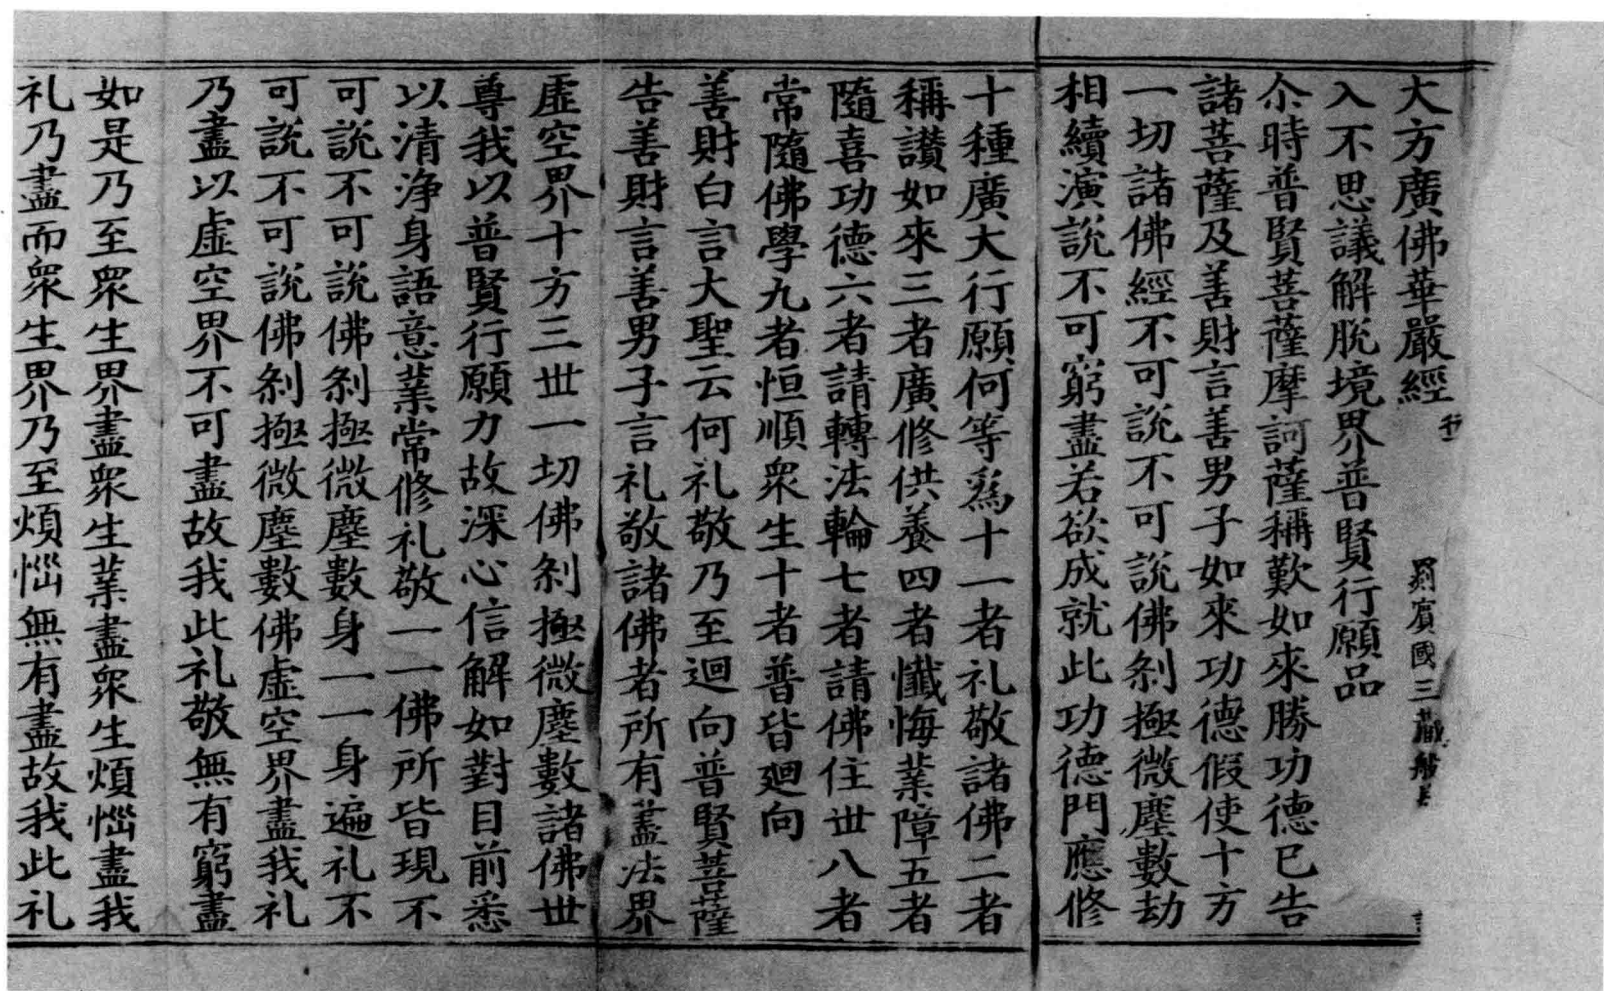 大方廣佛華嚴經 罽賓國三藏般
入不思議解脫境界普賢行願品
尒時普賢菩薩摩訶薩稱歎如來勝功德已告
諸菩薩及善財言善男子如來功德假使十方
一切諸佛經不可說不可說佛剎極微塵數劫
相續演說不可窮盡若欲成就此功德門應修
十種廣大行願何等爲十一者礼敬諸佛二者
稱讃如來三者廣修供養四者懺悔業障五者
隨喜功德六者請轉法輪七者請佛住世八者
常隨佛學九者恒順衆生十者普皆廻向
善財白言大聖云何礼敬乃至迴向普賢菩薩
告善財言善男子言礼敬諸佛者所有盡法界
虛空界十方三世一切佛剎極微塵數諸佛世
尊我以普賢行願力故深心信解如對目前悉
以清淨身語意業常修礼敬一一佛所皆現不
可說不可說佛剎極微塵數身一一身遍礼不
可說不可說佛剎極微塵數佛虛空界盡我礼
乃盡以虛空界不可盡故我此礼敬無有窮盡
如是乃至衆生界盡衆生業盡衆生煩惱盡我
礼乃盡而衆生界乃至煩惱無有盡故我此礼